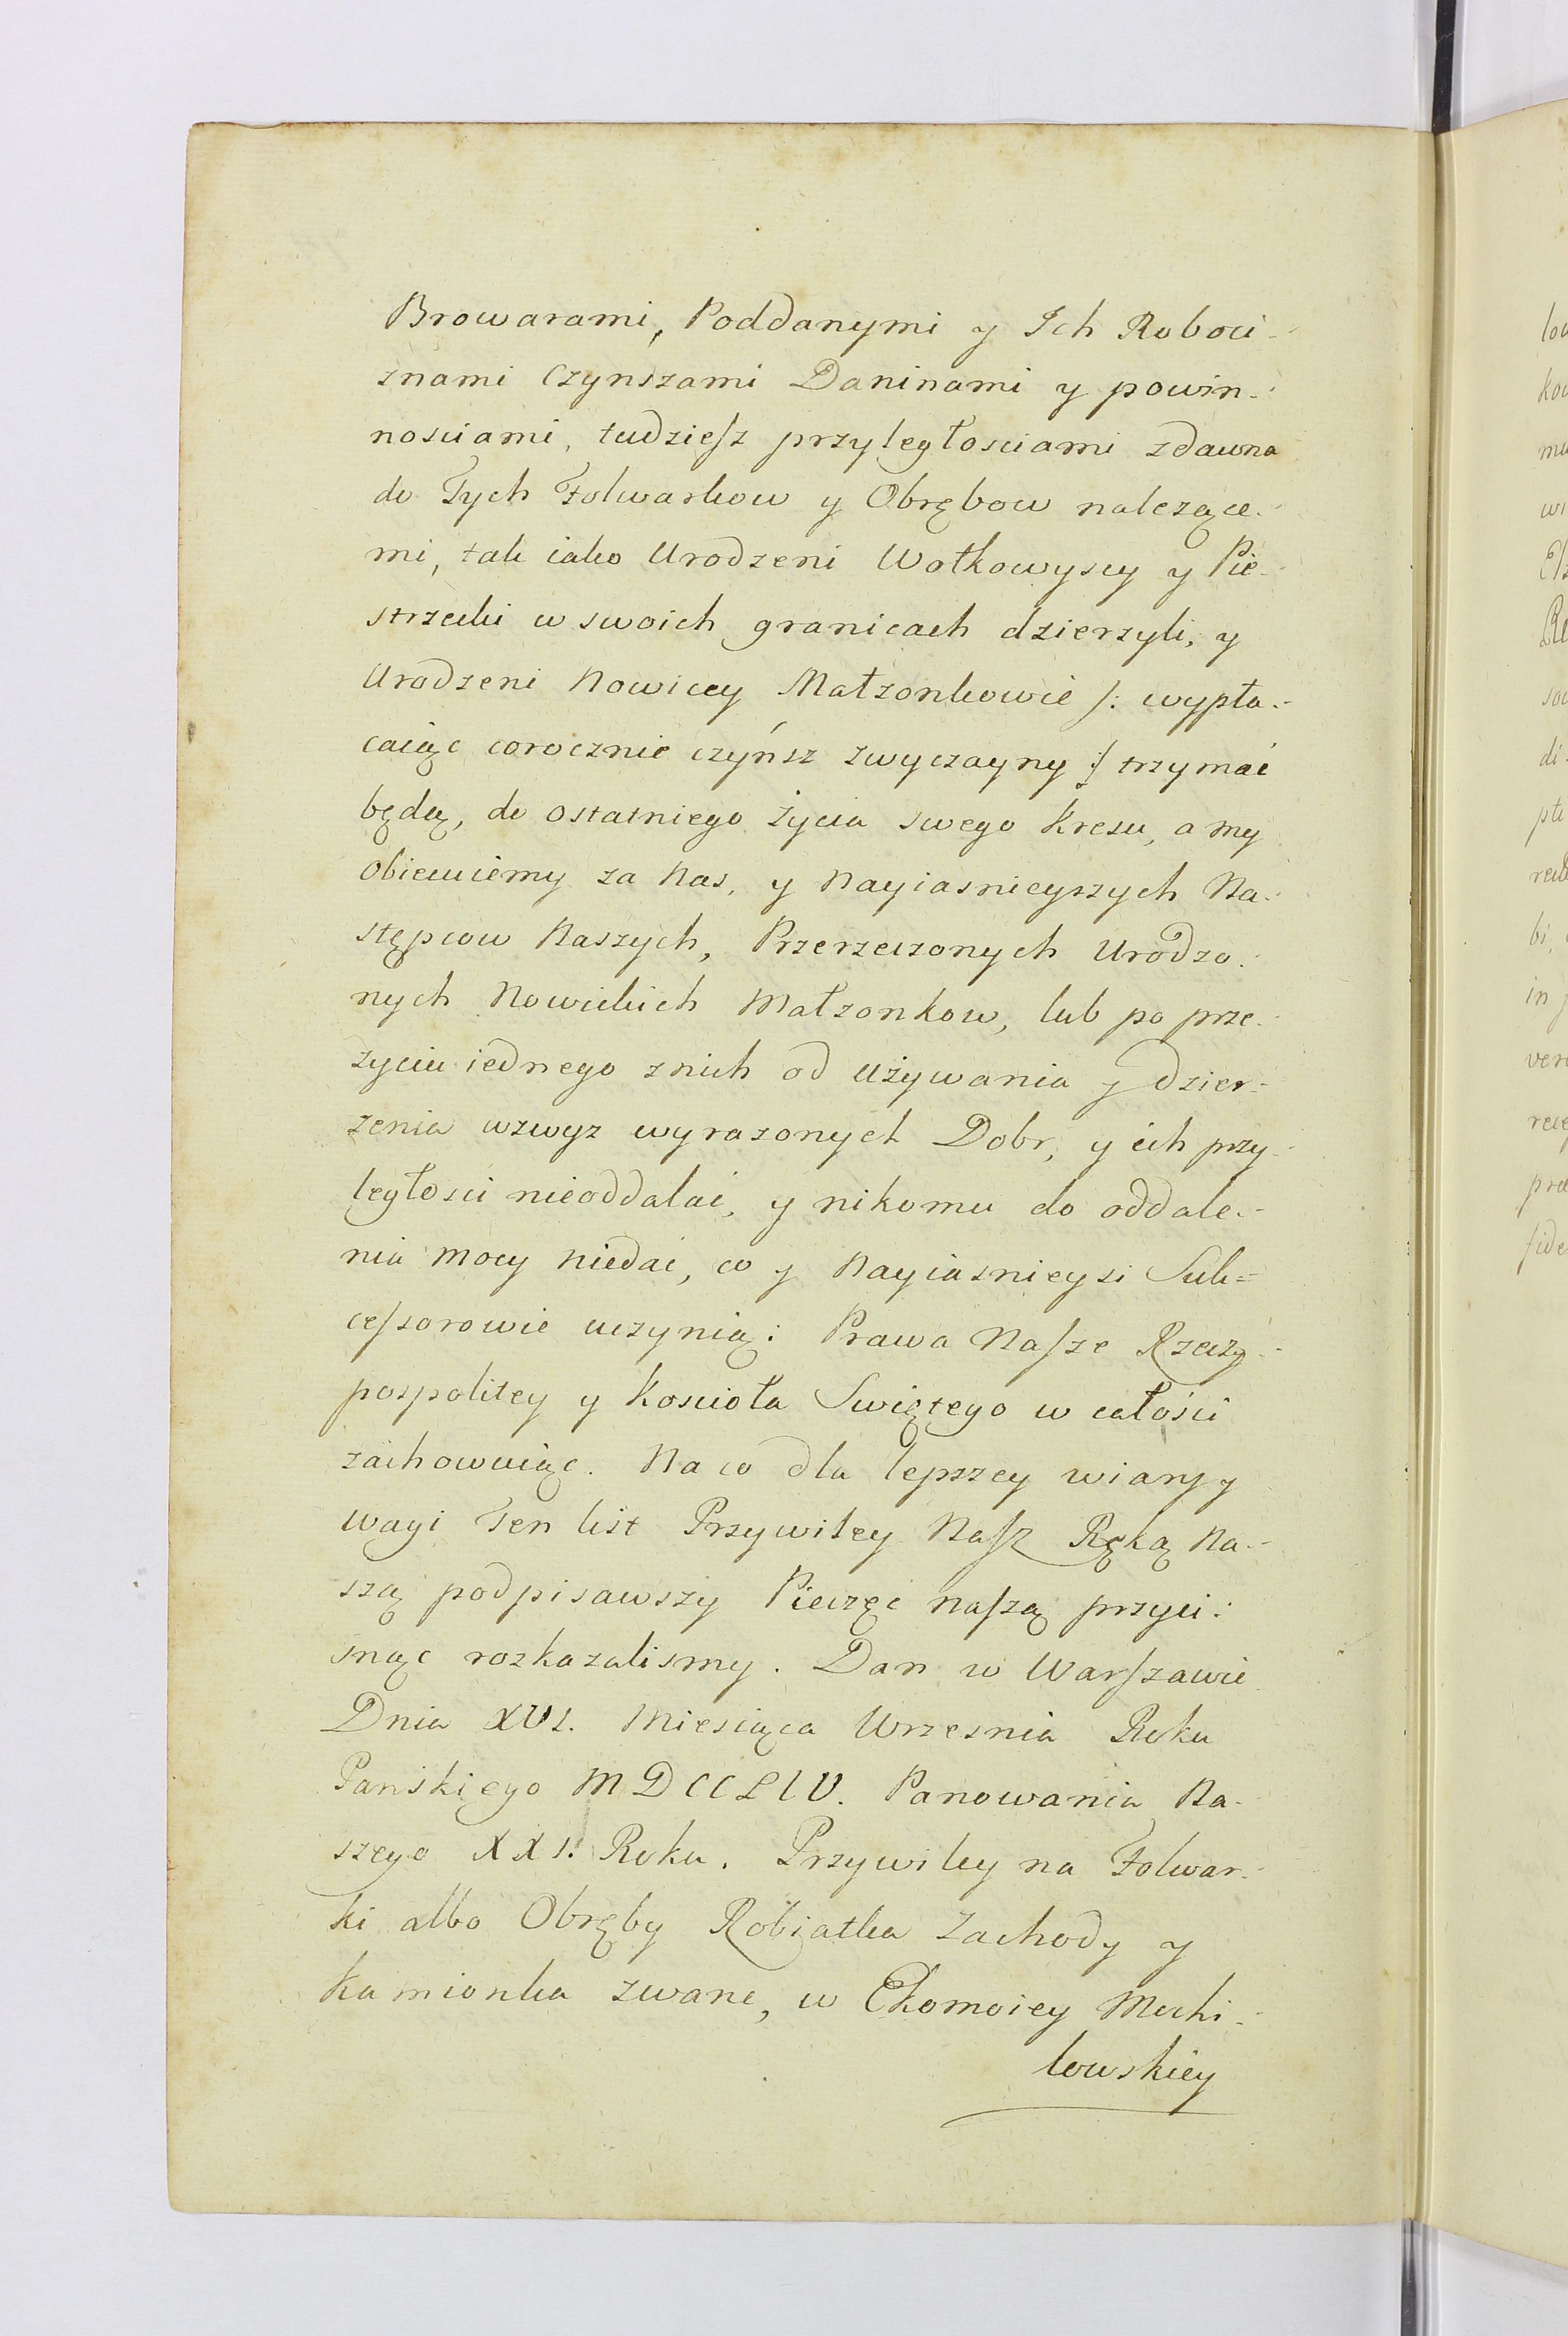 Browarami, Poddanymi y Ich Roboci-
znami Czynszami Daninami y powin-
nosciami, tudzieſz przyległosciami zdawna
do Tych Folwarkow y Obrębow należące-
mi, tak iako Urodzeni Wołkowyscy y Pie-
strzecki w swoich granicach dzierzyli, y
Urodzeni Nowiccy Małzonkowie /: wypła-
caiąc corocznie czyńsz zwyczayny :/ trzymać
będą, do ostatniego życia swego kresu, a my
Obiecuiemy za Nas, y Nayiasnieyszych Na-
stępcow Naszych, Przerzeczonych Urodzo-
nych Nowickich Małzonkow, lub po prze-
zyciu iednego znich od używania y dzier-
zenia wzwyz wyrazonych Dobr, y ich przy-
ległosci nieoddalać, y nikomu do oddale-
nia mocy niedać, co y Nayiasnieysi Suk=
ceſsorowie uczynią: Prawa Naſze Rzeczy-
pospolitey y Kosciola Swiętego w całości
zachowuiąc. Na co dla lepszey wiary y
wagi Ten list Przywiley Naſz Ręką Na-
szą podpisawszy Pieczęć naſzą przyci-
snąc rozkazalismy. Dan w Warſzawie
Dnia XVI. Miesiąca Wrzesnia Roku
Pańskiego MDCCLIV. Panowania Na-
szego XXI. Roku. Przywiley na Folwar-
ki albo Obręby Robiatka Zachody y
Kamionka zwane, w Ekomoiey Mochi-
lowskiey